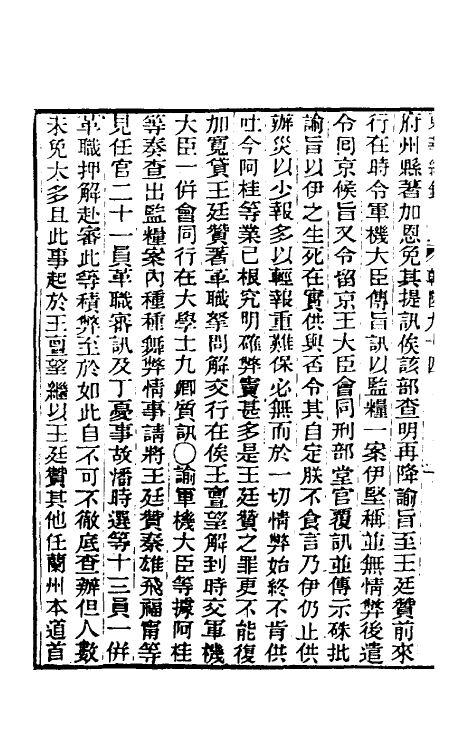 府州縣著加恩免其提訊俟該部查明再降諭旨至王廷贊前來
行在時令軍機大臣傳旨訊以監糧一案伊堅稱並無情弊後遣
令回京候旨又令留京王大臣會同刑部堂官覆訊並傳示硃批
諭旨以伊之生死在實供與否令其自定朕不食言乃伊仍止供
辦災以少報多以輕報重難保必無而於一切情弊始終不肯供
吐今阿桂等業已根究明確弊竇甚多是王廷贊之罪更不能復
加寬貸王廷贊著革職拏問解交行在俟王亶望解到時交軍機
大臣一併會同行在大學士九卿質訊〇諭軍機大臣等據阿桂
等奏查出監糧案內種種舞弊情事請將王廷贊秦雄飛福甯等
見任官二十一員革職審訊及丁憂事故潘時選等十三員一併
革職押解赴審此等積弊至於如此自不可不徹底查辦但人數
未免太多且此事起於王亶望繼以王廷贊其他任蘭州本道首